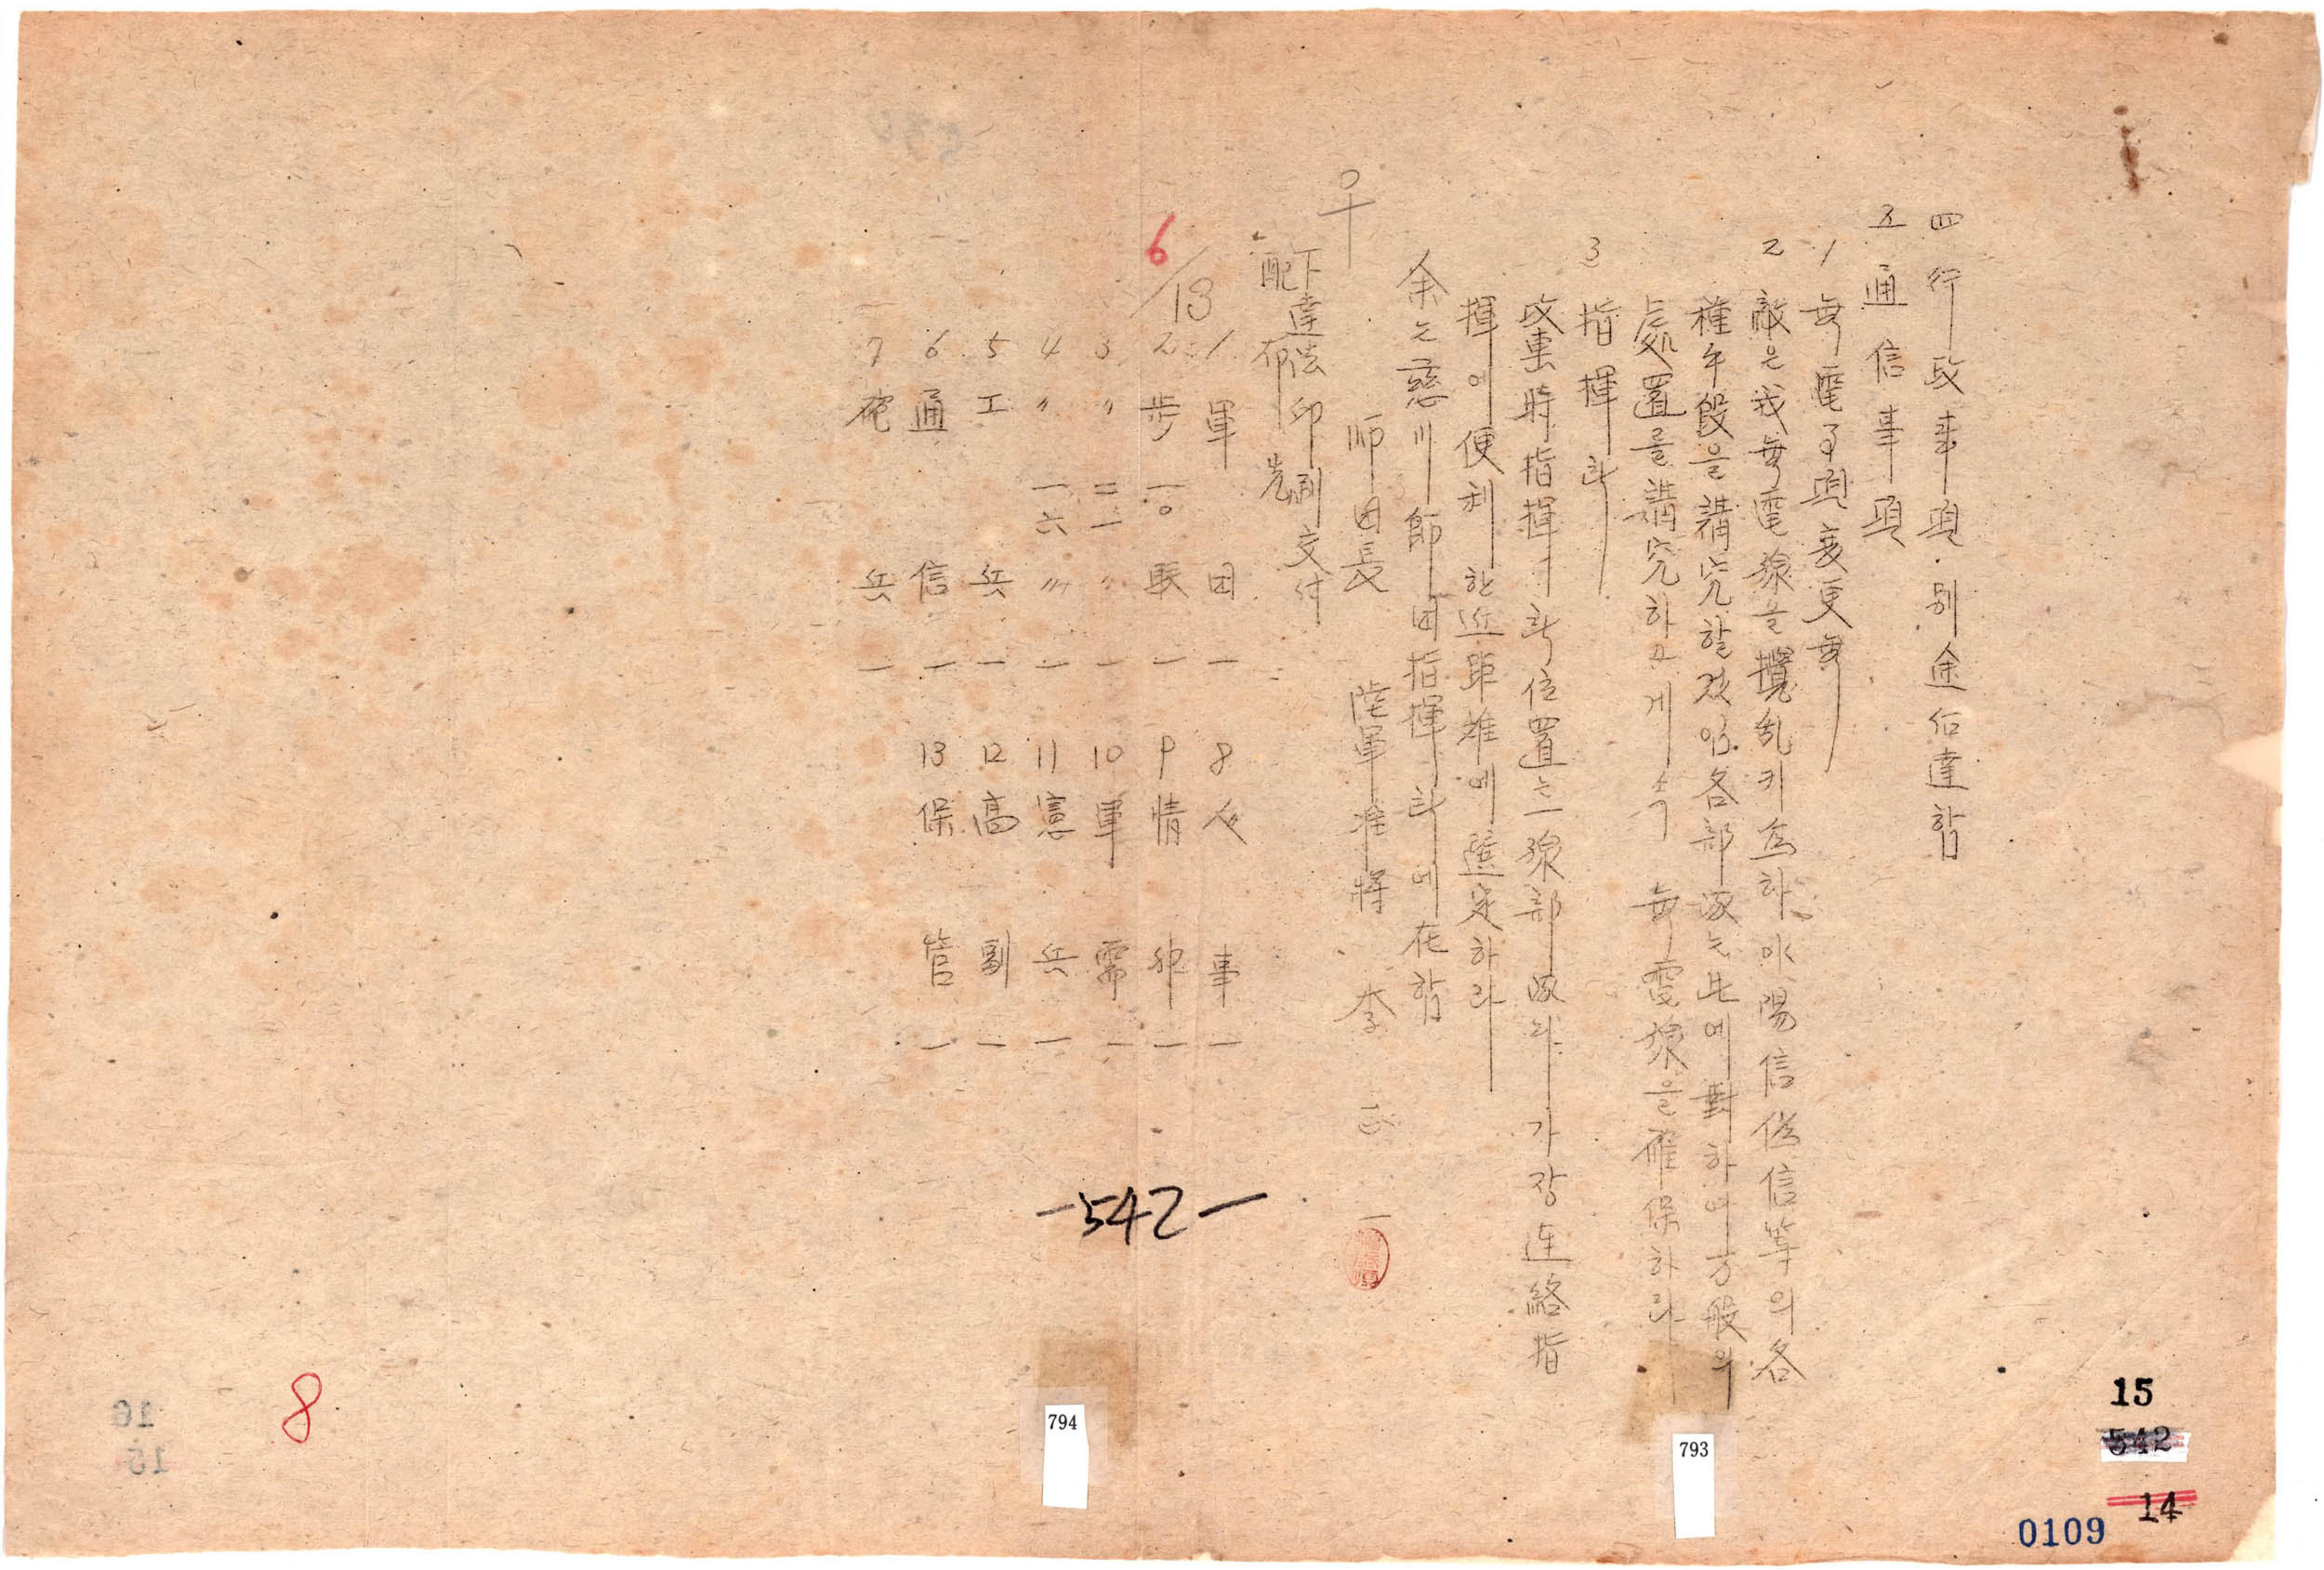 四 行政事項 別途佰達함
五 通信事項
1 無電事項 変更無
2 敵은 我 無電線을 攪乱키 위하 陽信 僞信等의 各
種手段을 講究할 것임 各部隊는 此에 對하여 万般의
処置를 講究하고 게속 無電線을 確保하라
3 指揮所
攻擊時 指揮所 位置는 一線部隊와 가장 連絡 指
揮에 便利한 近距離에 選定하라
余는 慈川 師団指揮所에 在함
師団長 陸軍准將 李 一
下達法 印刷交付
配布先
1 軍団 一
2 步 一〇 联 一
3 〃 二一 〃 一
4 〃 一六 〃 一
5 工兵 一
6 通信 一
7 砲兵 一
8 人事 一
9 情 一
10 軍需 一
11 憲兵 一
12 高副 一
13 保管 一
6/13
-542-
8
794
793
15
542
14
0109